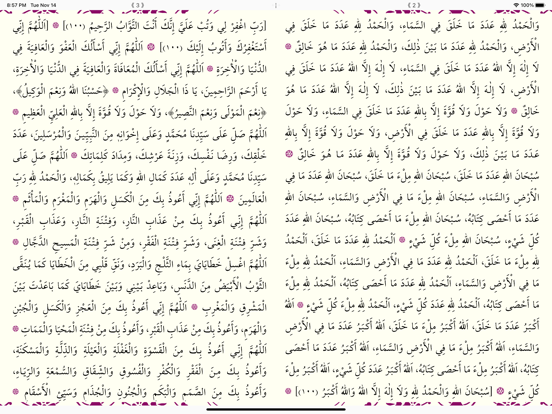 8:57 PM Tue Nov 14
100%
﴿ 2 ﴾
وَالْحَمْدُ لِلَّهِ عَدَدَ مَا خَلَقَ فِي السَّمَاءِ، وَالْحَمْدُ لِلَّهِ عَدَدَ مَا خَلَقَ فِي
الْأَرْضِ، وَالْحَمْدُ لِلَّهِ عَدَدَ مَا بَيْنَ ذَلِكَ، وَالْحَمْدُ لِلَّهِ عَدَدَ مَا هُوَ خَالِقٌ
لَا إِلَهَ إِلَّا اللهُ عَدَدَ مَا خَلَقَ فِي السَّمَاءِ، لَا إِلَهَ إِلَّا اللهُ عَدَدَ مَا خَلَقَ فِي
الْأَرْضِ، لَا إِلَهَ إِلَّا اللهُ عَدَدَ مَا بَيْنَ ذَلِكَ، لَا إِلَهَ إِلَّا اللهُ عَدَدَ مَا هُوَ
خَالِقٌ وَلَا حَوْلَ وَلَا قُوَّةَ إِلَّا بِاللهِ عَدَدَ مَا خَلَقَ فِي السَّمَاءِ، وَلَا حَوْلَ
وَلَا قُوَّةَ إِلَّا بِاللهِ عَدَدَ مَا خَلَقَ فِي الْأَرْضِ، وَلَا حَوْلَ وَلَا قُوَّةَ إِلَّا بِاللهِ
عَدَدَ مَا بَيْنَ ذَلِكَ، وَلَا حَوْلَ وَلَا قُوَّةَ إِلَّا بِاللهِ عَدَدَ مَا هُوَ خَالِقٌ
سُبْحَانَ اللهِ عَدَدَ مَا خَلَقَ، سُبْحَانَ اللهِ مِلْءَ مَا خَلَقَ، سُبْحَانَ اللهِ عَدَدَ
مَا فِي الْأَرْضِ وَالسَّمَاءِ، سُبْحَانَ اللهِ مِلْءَ مَا فِي الْأَرْضِ وَالسَّمَاءِ، سُبْحَانَ اللهِ
عَدَدَ مَا أَحْصَى كِتَابُهُ، سُبْحَانَ اللهِ مِلْءَ مَا أَحْصَى كِتَابُهُ، سُبْحَانَ اللهِ عَدَدَ
كُلِّ شَيْءٍ، سُبْحَانَ اللهِ مِلْءَ كُلِّ شَيْءٍ اَلْحَمْدُ لِلَّهِ عَدَدَ مَا خَلَقَ، اَلْحَمْدُ
لِلَّهِ مِلْءَ مَا خَلَقَ، اَلْحَمْدُ لِلَّهِ عَدَدَ مَا فِي الْأَرْضِ وَالسَّمَاءِ، اَلْحَمْدُ لِلَّهِ مِلْءَ
مَا فِي الْأَرْضِ وَالسَّمَاءِ، اَلْحَمْدُ لِلَّهِ عَدَدَ مَا أَحْصَى كِتَابُهُ، اَلْحَمْدُ لِلَّهِ مِلْءَ
مَا أَحْصَى كِتَابُهُ، اَلْحَمْدُ لِلَّهِ عَدَدَ كُلِّ شَيْءٍ، اَلْحَمْدُ لِلَّهِ مِلْءَ كُلِّ شَيْءٍ اَللهُ
أَكْبَرُ عَدَدَ مَا خَلَقَ، اَللهُ أَكْبَرُ مِلْءَ مَا خَلَقَ، اَللهُ أَكْبَرُ عَدَدَ مَا فِي الْأَرْضِ
وَالسَّمَاءِ، اَللهُ أَكْبَرُ مِلْءَ مَا فِي الْأَرْضِ وَالسَّمَاءِ، اَللهُ أَكْبَرُ عَدَدَ مَا أَحْصَى
كِتَابُهُ، اَللهُ أَكْبَرُ مِلْءَ مَا أَحْصَى كِتَابُهُ، اَللهُ أَكْبَرُ عَدَدَ كُلِّ شَيْءٍ، اَللهُ أَكْبَرُ مِلْءَ
كُلِّ شَيْءٍ [سُبْحَانَ اللهِ وَالْحَمْدُ لِلَّهِ وَلَا إِلَهَ إِلَّا اللهُ وَاللهُ أَكْبَرُ (١٠٠)]
﴿ 3 ﴾
[رَبِّ اغْفِرْ لِي وَتُبْ عَلَيَّ إِنَّكَ أَنْتَ التَّوَّابُ الرَّحِيمُ (١٠٠)] [اَللَّهُمَّ إِنِّي
أَسْتَغْفِرُكَ وَأَتُوبُ إِلَيْكَ (١٠٠)] اَللَّهُمَّ إِنِّي أَسْأَلُكَ الْعَفْوَ وَالْعَافِيَةَ فِي
الدُّنْيَا وَالْآخِرَةِ اَللَّهُمَّ إِنِّي أَسْأَلُكَ الْمُعَافَاةَ وَالْعَافِيَةَ فِي الدُّنْيَا وَالْآخِرَةِ،
يَا أَرْحَمَ الرَّاحِمِينَ، يَا ذَا الْجَلَالِ وَالْإِكْرَامِ ﴿حَسْبُنَا اللهُ وَنِعْمَ الْوَكِيلُ﴾،
﴿نِعْمَ الْمَوْلَى وَنِعْمَ النَّصِيرُ﴾، وَلَا حَوْلَ وَلَا قُوَّةَ إِلَّا بِاللهِ الْعَلِيِّ الْعَظِيمِ
اَللَّهُمَّ صَلِّ عَلَى سَيِّدِنَا مُحَمَّدٍ وَعَلَى إِخْوَانِهِ مِنَ النَّبِيِّينَ وَالْمُرْسَلِينَ، عَدَدَ
خَلْقِكَ، وَرِضَا نَفْسِكَ، وَزِنَةَ عَرْشِكَ، وَمِدَادَ كَلِمَاتِكَ اَللَّهُمَّ صَلِّ عَلَى
سَيِّدِنَا مُحَمَّدٍ وَعَلَى آلِهِ عَدَدَ كَمَالِ اللهِ وَكَمَا يَلِيقُ بِكَمَالِهِ، وَالْحَمْدُ لِلَّهِ رَبِّ
الْعَالَمِينَ اَللَّهُمَّ إِنِّي أَعُوذُ بِكَ مِنَ الْكَسَلِ وَالْهَرَمِ وَالْمَغْرَمِ وَالْمَأْثَمِ
اَللَّهُمَّ إِنِّي أَعُوذُ بِكَ مِنْ عَذَابِ النَّارِ، وَفِتْنَةِ النَّارِ، وَعَذَابِ الْقَبْرِ،
وَشَرِّ فِتْنَةِ الْغِنَى، وَشَرِّ فِتْنَةِ الْفَقْرِ، وَمِنْ شَرِّ فِتْنَةِ الْمَسِيحِ الدَّجَّالِ
اَللَّهُمَّ اغْسِلْ خَطَايَايَ بِمَاءِ الثَّلْجِ وَالْبَرَدِ، وَنَقِّ قَلْبِي مِنَ الْخَطَايَا كَمَا يُنَقَّى
الثَّوْبُ الْأَبْيَضُ مِنَ الدَّنَسِ، وَبَاعِدْ بَيْنِي وَبَيْنَ خَطَايَايَ كَمَا بَاعَدْتَ بَيْنَ
الْمَشْرِقِ وَالْمَغْرِبِ اَللَّهُمَّ إِنِّي أَعُوذُ بِكَ مِنَ الْعَجْزِ وَالْكَسَلِ وَالْجُبْنِ
وَالْهَرَمِ، وَأَعُوذُ بِكَ مِنْ عَذَابِ الْقَبْرِ، وَأَعُوذُ بِكَ مِنْ فِتْنَةِ الْمَحْيَا وَالْمَمَاتِ
اَللَّهُمَّ إِنِّي أَعُوذُ بِكَ مِنَ الْقَسْوَةِ وَالْغَفْلَةِ وَالْعَيْلَةِ وَالذِّلَّةِ وَالْمَسْكَنَةِ،
وَأَعُوذُ بِكَ مِنَ الْفَقْرِ وَالْكُفْرِ وَالْفُسُوقِ وَالشِّقَاقِ وَالسُّمْعَةِ وَالرِّيَاءِ،
وَأَعُوذُ بِكَ مِنَ الصَّمَمِ وَالْبَكَمِ وَالْجُنُونِ وَالْجُذَامِ وَسَيِّئِ الْأَسْقَامِ